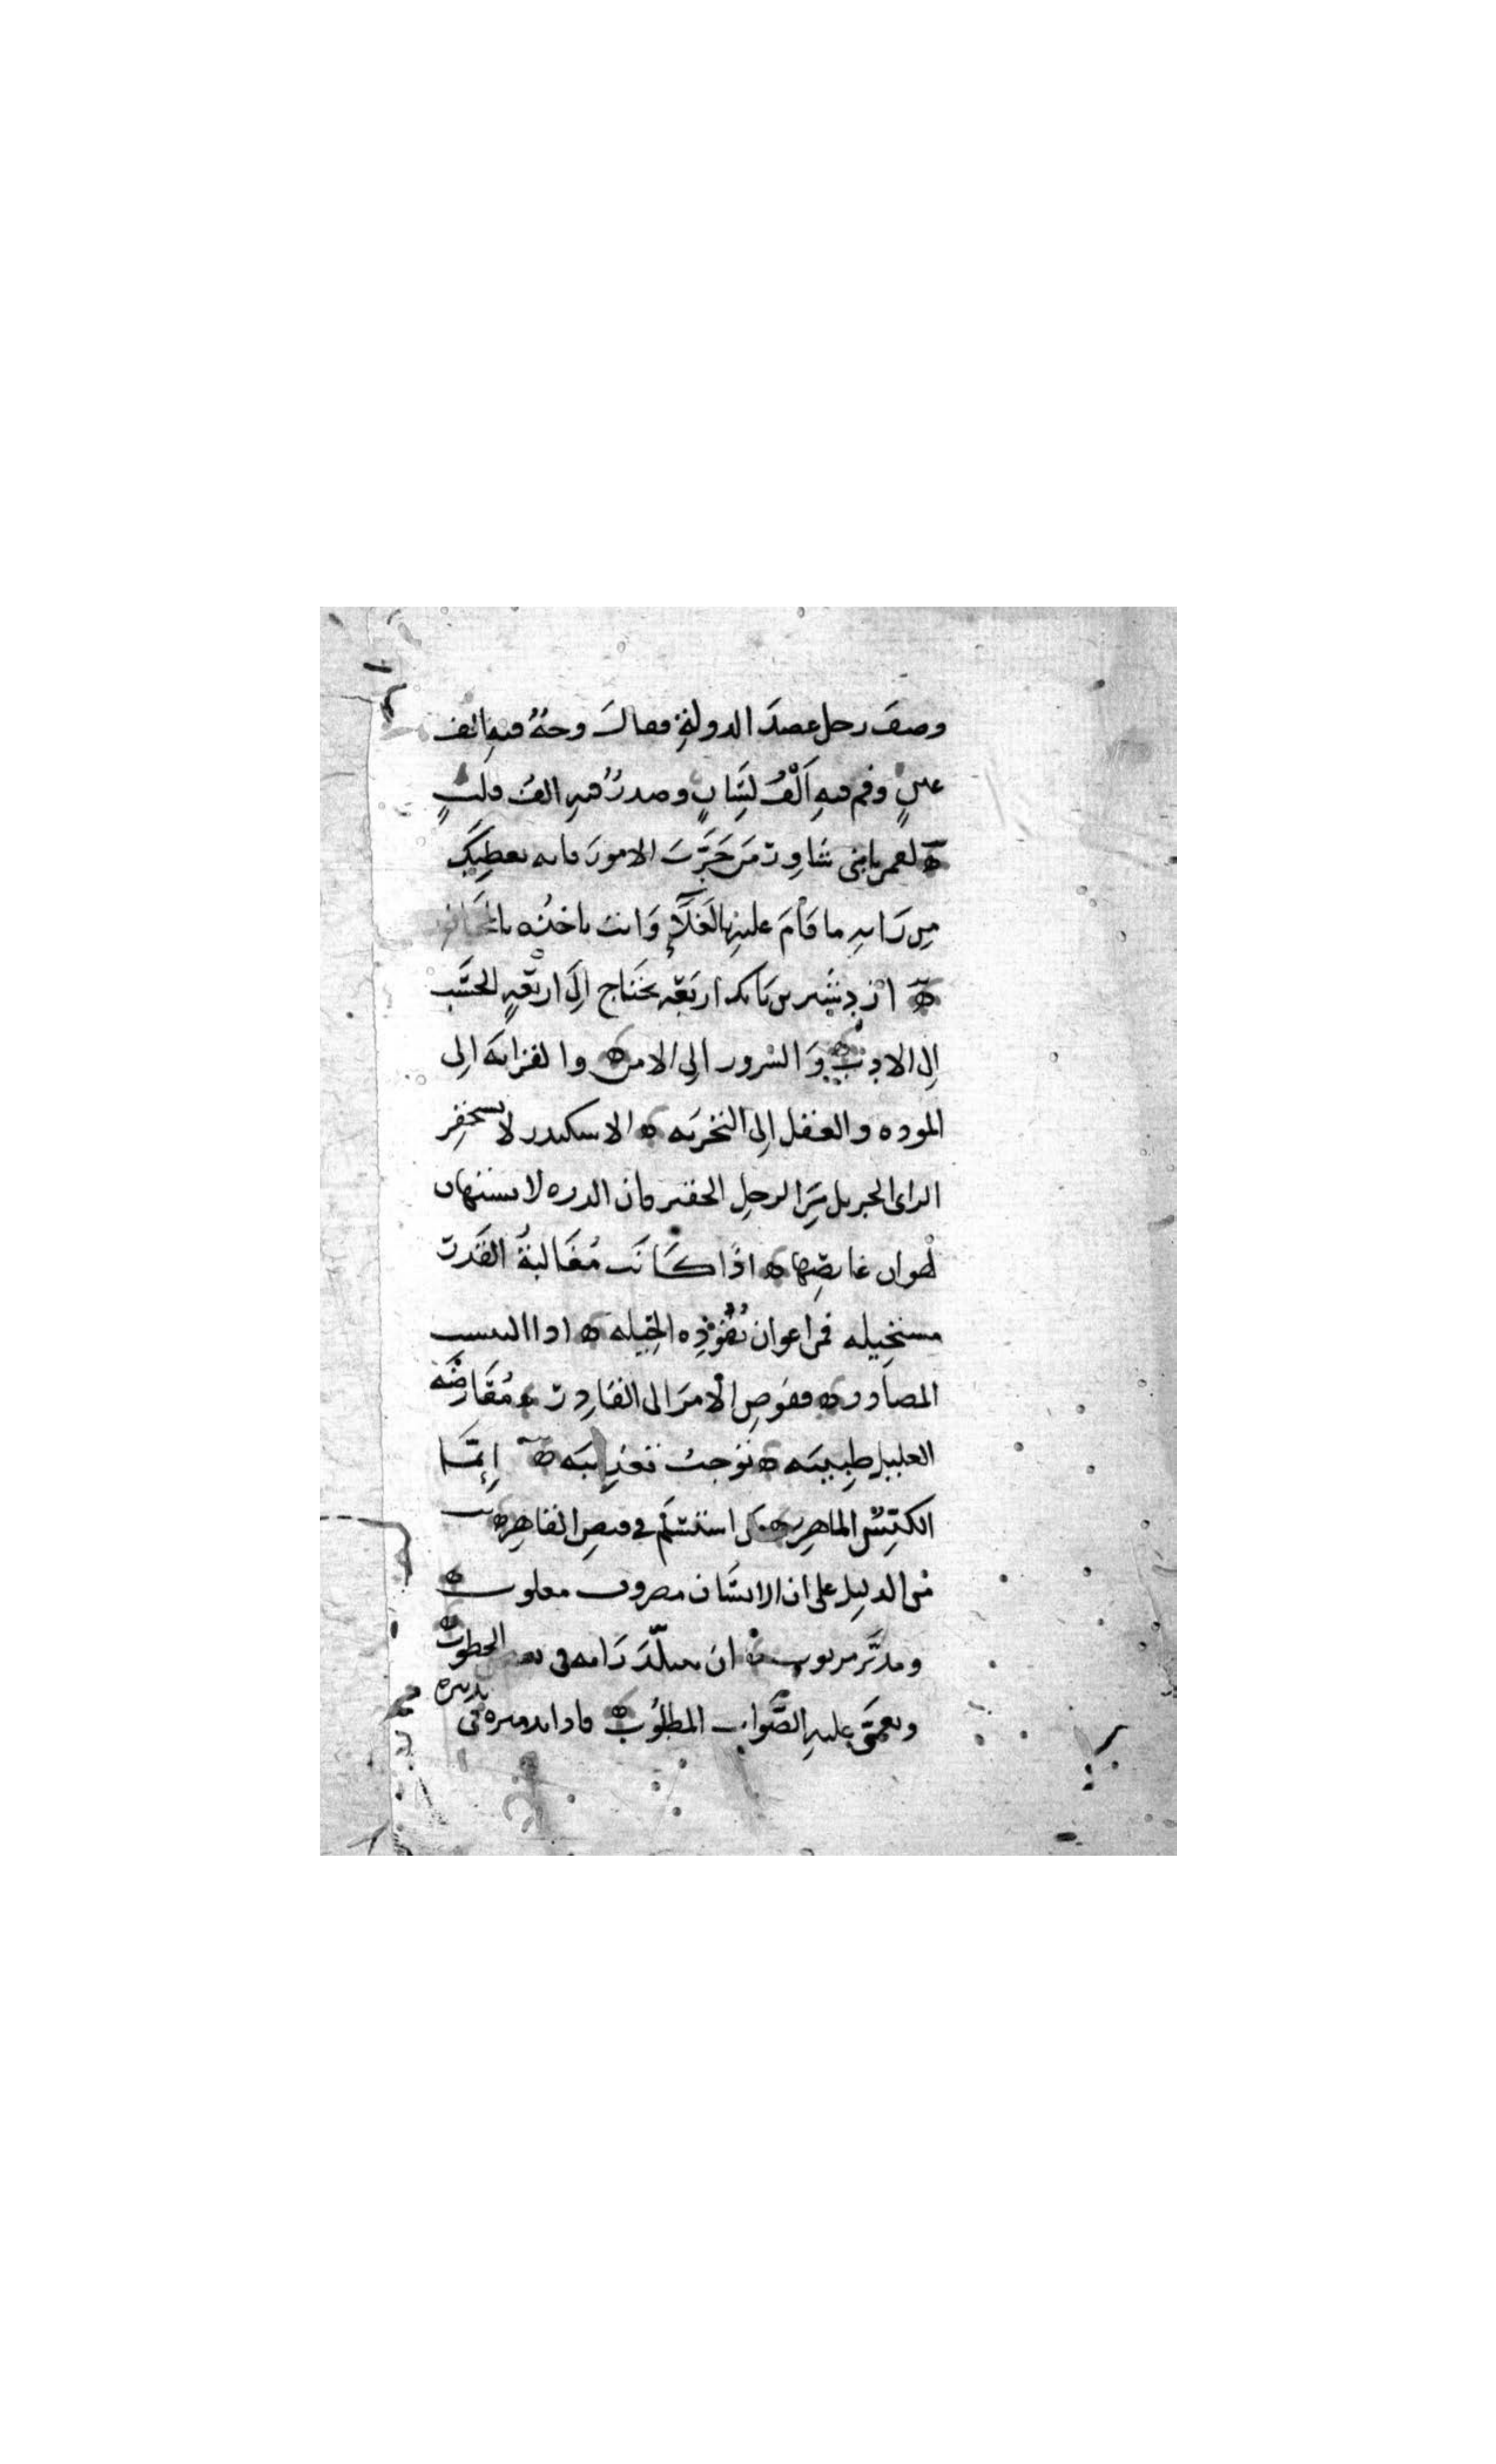 وصفَ رجل عضدَ الدولةِ فقالَ وجهٌ فيهِ الف
عينٍ وفم فيهِ اَلْفُ لِسَانٍ وصدرٌ فيهِ الفُ قلبٍ
لعمر يابنى شاوِر مَن جَرَّبَ الامورَ فانه يعطِيكَ
مِن رَايهِ ما قَامَ عليهِ بالغَلَاءِ وَانت تاخذُه بالمجان
ازدِشير بن بابك اربَعَة تحتاج اِلَى اربَعَةٍ الحسَب
اِلى الادبِ وَ السُرور الِى الامن والقرَابَة اِلى
الموده والعقل اِلى التجربَه الاسكندر لا تستحقِر
الراى الجزيل مِنَ الرجلِ الحقير فان الدره لا يستهان
لهوان غايصِها اذَا كَانَت مُغَالبَةُ القَدَر
مستحِيله فمن اعوان نُفُوذِه الحِيله اذا التبست
المصادر ففوضِ الامرَ الى القادِر مُقَارضَة
العليل طبيبَه تُوجبُ تعذِيبَه اِنَّمَا
الكَيِّسُ الماهِر مَن استَسْلَم فى قبضِ القاهِر
مِن الدليل على ان الانسَان مصروف مغلوب
ومدبَّر مربوب ان يتبلَّدَ رَايه فى بعض الخطوب
ويعمَى عليهِ الصَّواب المطلوُب فاذا تدميره فى
تدبيره